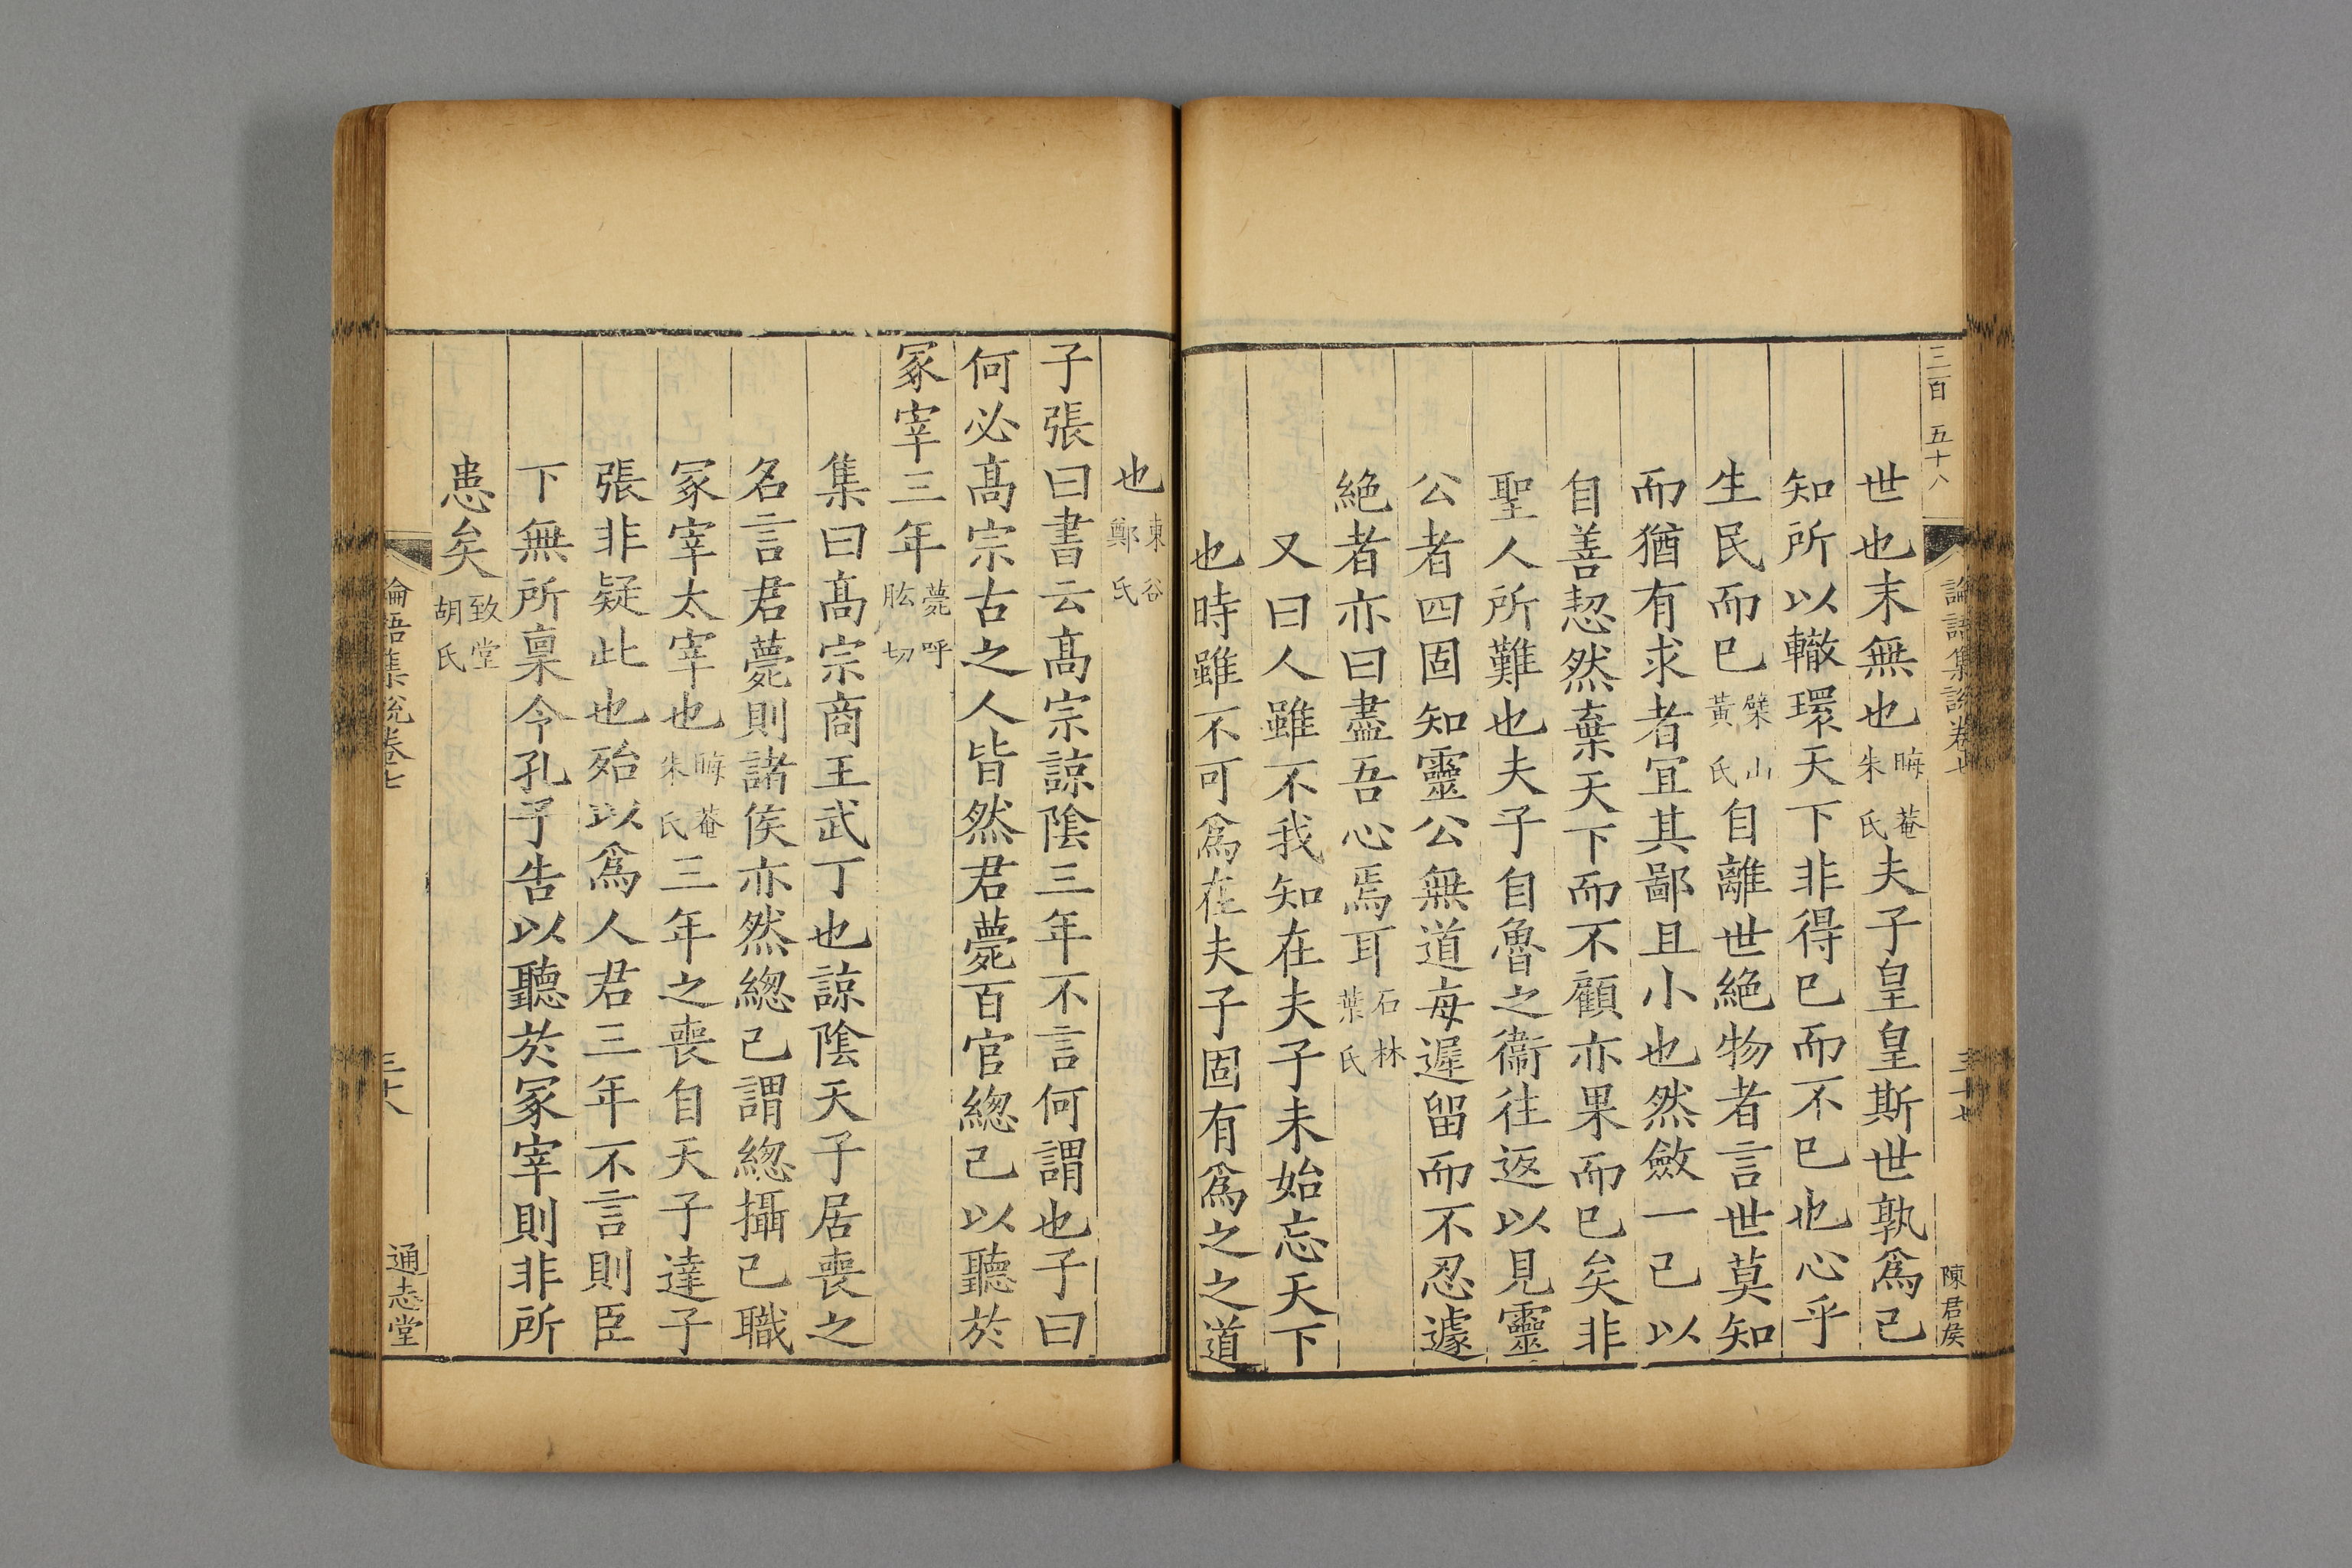 三百五十八
論語集說卷七
三十七
陳君矦
世也末無也晦菴朱氏夫子皇皇斯世孰爲己
知所以轍環天下非得已而不已也心乎
生民而已檗山黃氏自離世絕物者言世莫知
而猶有求者宜其鄙且小也然斂一己以
自善恝然棄天下而不顧亦果而已矣非
聖人所難也夫子自魯之衞往返以見靈
公者四固知靈公無道每遲留而不忍遽
絕者亦曰盡吾心焉耳石林葉氏
又曰人雖不我知在夫子未始忘天下
也時雖不可爲在夫子固有爲之之道
也東谷鄭氏
子張曰書云髙宗諒陰三年不言何謂也子曰
何必髙宗古之人皆然君薨百官緫己以聽於
冢宰三年薨呼肱切
集曰髙宗商王武丁也諒陰天子居喪之
名言君薨則諸侯亦然緫己謂緫攝己職
冢宰太宰也晦菴朱氏三年之喪自天子達子
張非疑此也殆以爲人君三年不言則臣
下無所稟令孔子告以聽於冢宰則非所
患矣致堂胡氏
論語集說卷七
三十八
通志堂